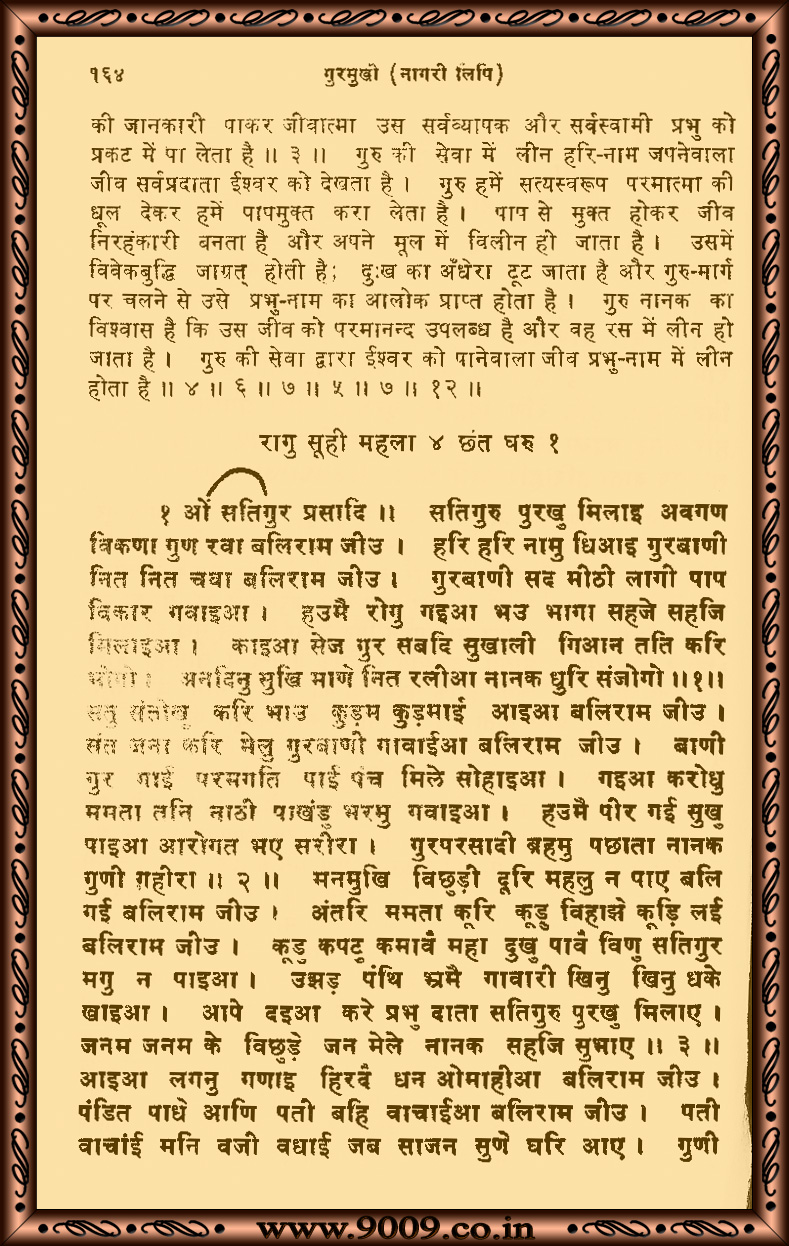 १६४ गुरमुखी (नागरी लिपि)
की जानकारी पाकर जीवात्मा उस सर्वव्यापक और सर्वस्वामी प्रभु को
प्रकट में पा लेता है ॥ ३ ॥ गुरु की सेवा में लीन हरि-नाम जपनेवाला
जीव सर्वप्रदाता ईश्वर को देखता है । गुरु हमें सत्यस्वरूप परमात्मा की
धूल देकर हमें पापमुक्त करा लेता है । पाप से मुक्त होकर जीव
निरहंकारी बनता है और अपने मूल में विलीन हो जाता है । उसमें
विवेकबुद्धि जाग्रत् होती है; दुःख का अँधेरा टूट जाता है और गुरु-मार्ग
पर चलने से उसे प्रभु-नाम का आलोक प्राप्त होता है । गुरु नानक का
विश्वास है कि उस जीव को परमानन्द उपलब्ध है और वह रस में लीन हो
जाता है । गुरु की सेवा द्वारा ईश्वर को पानेवाला जीव प्रभु-नाम में लीन
होता है ॥ ४ ॥ ६ ॥ ७ ॥ ५ ॥ ७ ॥ १२ ॥
रागु सूही महला ४ छंत घरु १
१ ओं सतिगुर प्रसादि ॥ सतिगुरु पुरखु मिलाइ अवगण
विकणा गुण रवा बलिराम जीउ । हरि हरि नामु धिआइ गुरबाणी
नित नित चवा बलिराम जीउ । गुरबाणी सद मीठी लागी पाप
विकार गवाइआ । हउमै रोगु गइआ भउ भागा सहजे सहजि
मिलाइआ । काइआ सेज गुर सबदि सुखाली गिआन तति करि
भोगो । अनदिनु सुखि माणे नित रलीआ नानक धुरि संजोगो ॥१॥
सतु संतोखु करि भाउ कुड़म कुड़माई आइआ बलिराम जीउ ।
संत जना करि मेलु गुरबाणी गावाईआ बलिराम जीउ । बाणी
गुर गाई परमगति पाई पंच मिले सोहाइआ । गइआ करोधु
ममता तनि नाठी पाखंडु भरमु गवाइआ । हउमै पीर गई सुखु
पाइआ आरोगत भए सरीरा । गुरपरसादी ब्रहमु पछाता नानक
गुणी गहीरा ॥ २ ॥ मनमुखि विछुड़ी दूरि महलु न पाए बलि
गई बलिराम जीउ । अंतरि ममता कूरि कूड़ु विहाझे कूड़ि लई
बलिराम जीउ । कूड़ु कपटु कमावै महा दुखु पावै विणु सतिगुर
मगु न पाइआ । उझड़ पंथि भ्रमै गावारी खिनु खिनु धके
खाइआ । आपे दइआ करे प्रभु दाता सतिगुरु पुरखु मिलाए ।
जनम जनम के विछुड़े जन मेले नानक सहजि सुभाए ॥ ३ ॥
आइआ लगनु गणाइ हिरदै धन ओमाहीआ बलिराम जीउ ।
पंडित पाधे आणि पती बहि वाचाईआ बलिराम जीउ । पती
वाचाई मनि वजी वधाई जब साजन सुणे घरि आए । गुणी
www.9009.co.in